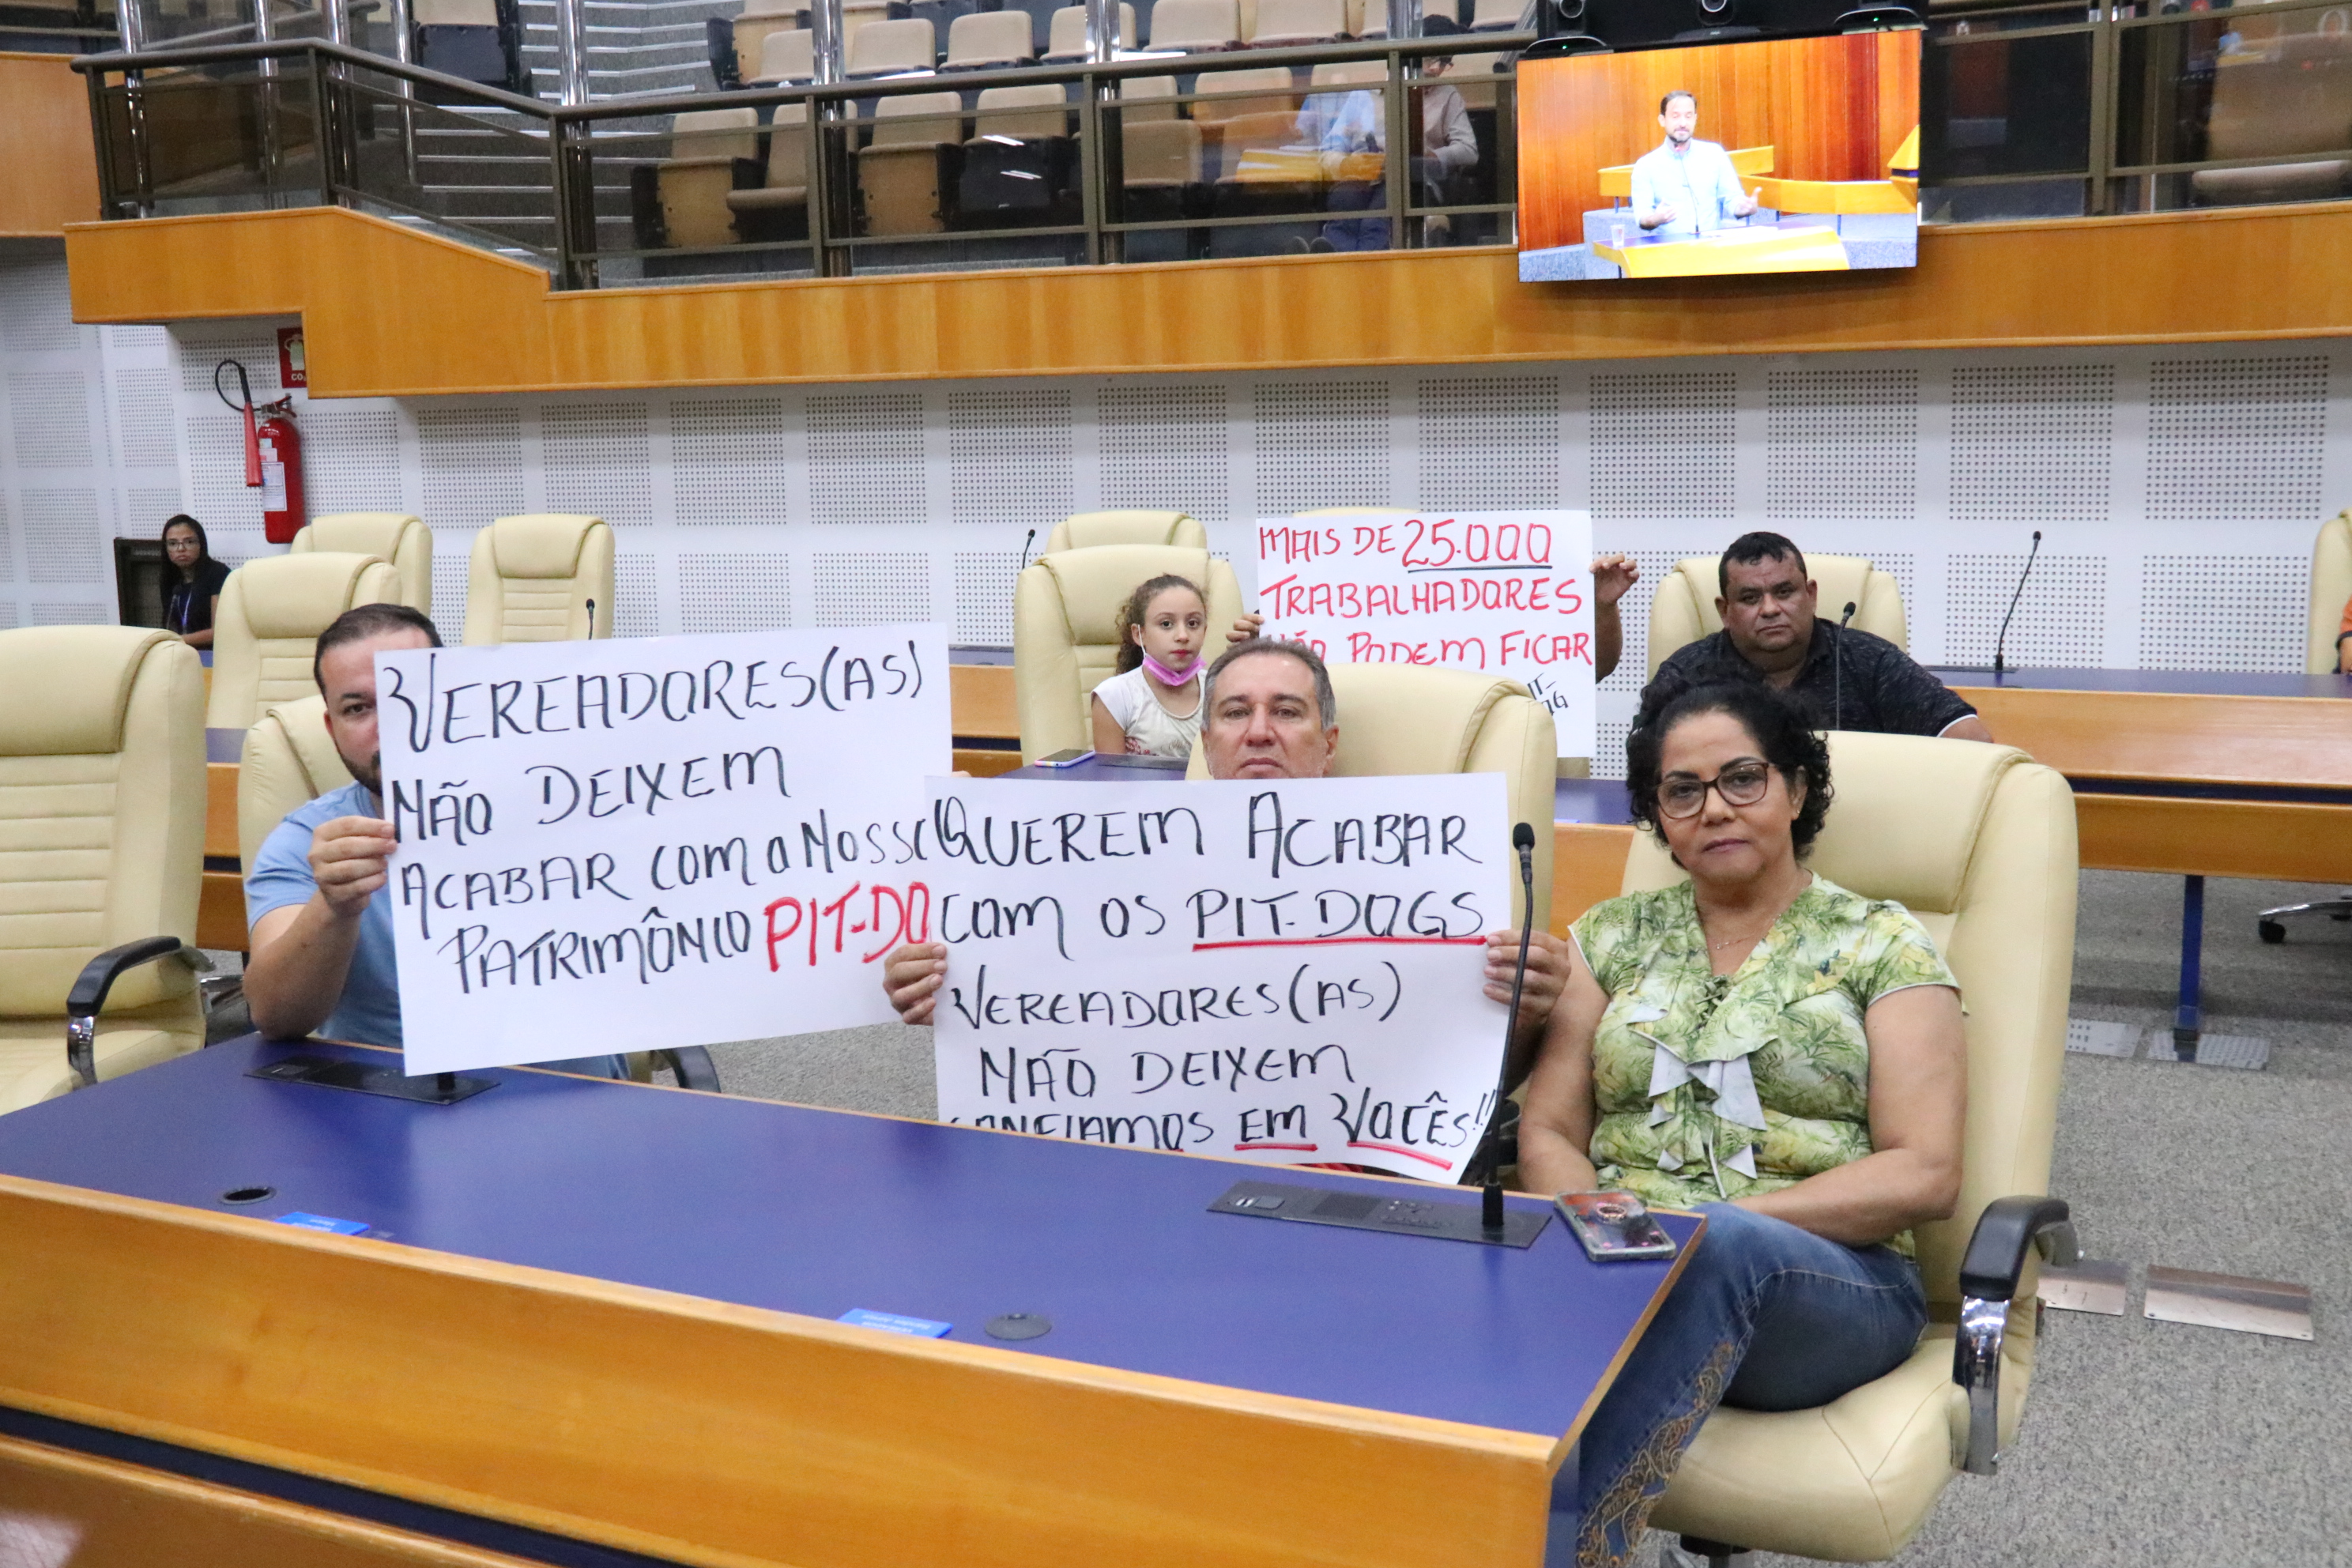 VEREADORES(AS)
NÃO DEIXEM
ACABAR COM O NOSSO
PATRIMÔNIO PIT-DO
QUEREM ACABAR
COM OS PIT-DOGS
VEREADORES(AS)
NÃO DEIXEM
CONFIAMOS EM VOCÊS!!
MAIS DE 25.000
TRABALHADORES
NÃO PODEM FICAR